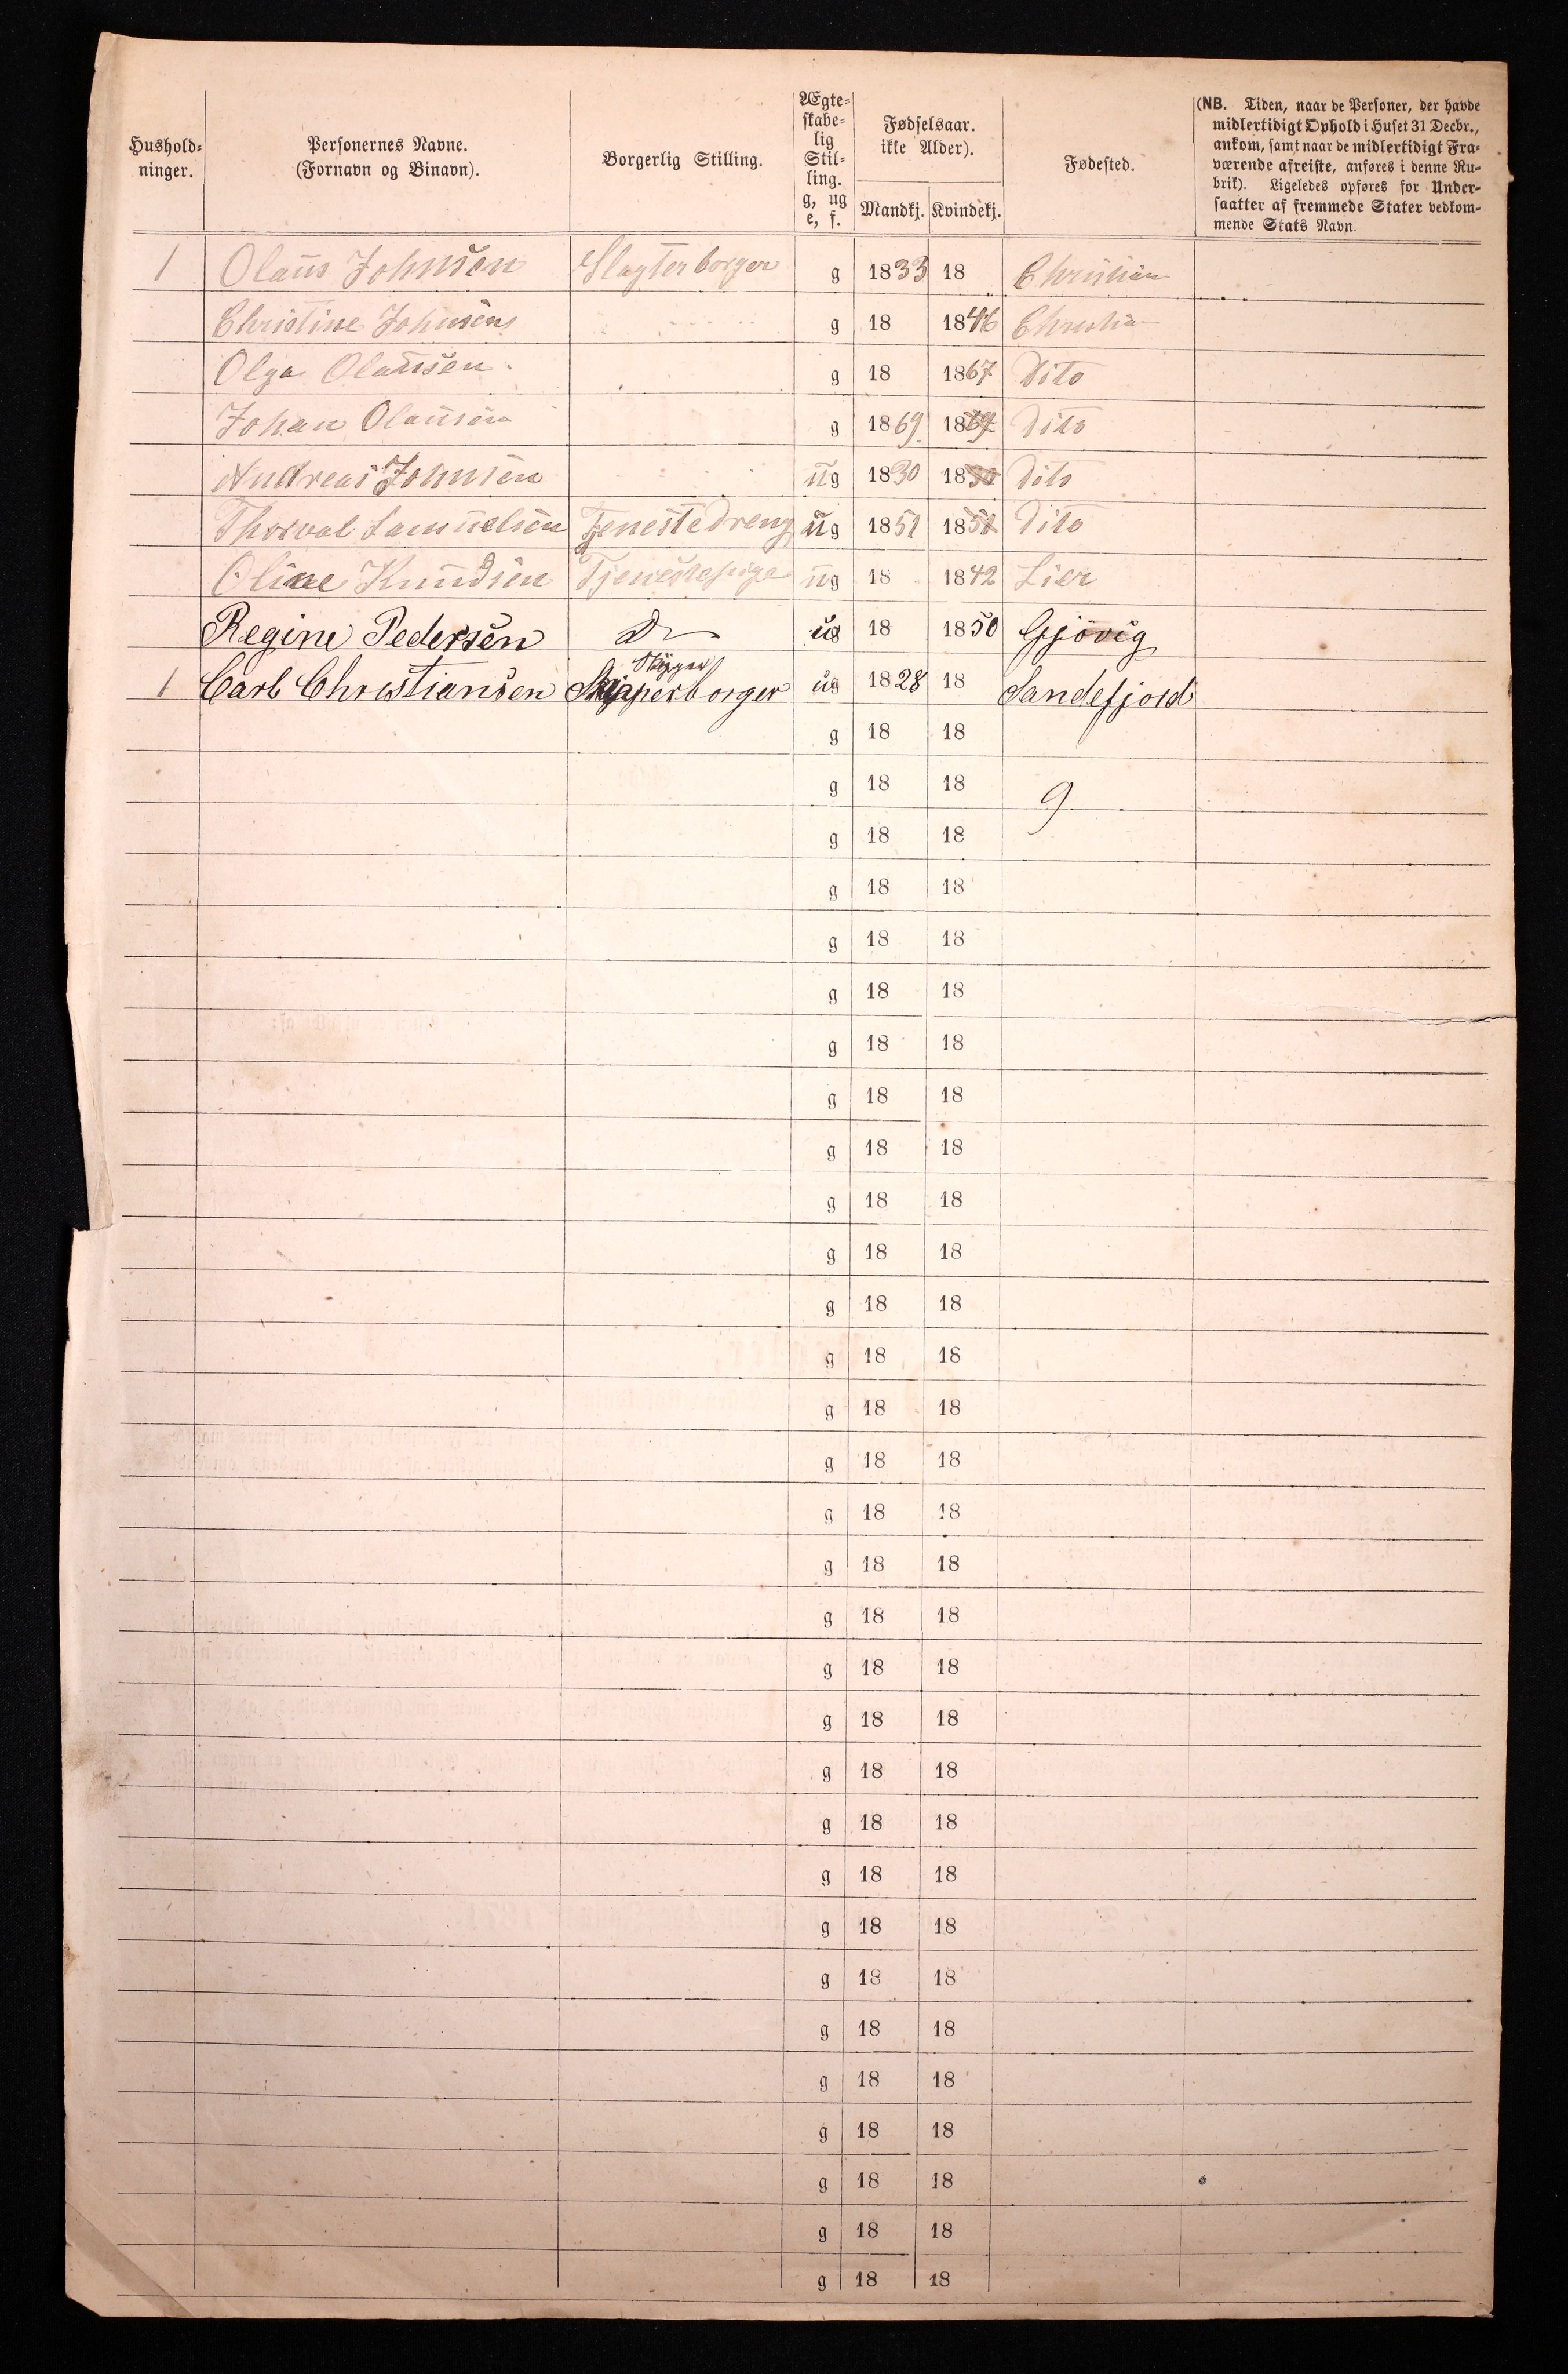 Hushold-
ninger.
Personernes Navne.
(Fornavn og Binavn).
Borgerlig Stilling.
Ægte-
skabe-
lig
Stil-
ling.
g, ug
e, f.
Fødselsaar.
ikke Alder).
Mandkj. Kvindekj.
Fødested.
(NB. Tiden, naar de Personer, der havde
midlertidigt Ophold i Huset 31 Decbr.,
ankom, samt naar de midlertidigt Fra-
værende afreiste, anføres i denne Ru-
brik). Ligeledes opføres for Under-
saatter af fremmede Stater vedkom-
mende Stats Navn.
1 Olaus Johnsen Slagterborger g 1833 18 Christian
Christine Johnsen g 18 1846 Christia
Olga Olausen g 18 1867 Dito
Johan Olausen g 1869 1869 Dito
Andreas Johnsen ug 1830 1830 Dito
Thorval Samuelsen Tjenestedreng ug 1851 1851 Dito
Oline Knudsen Tjenestepige ug 18 1842 Lier
Regine Pedersen Do ug 18 1850 Gjövig
1 Carl Christiansen Skipperborger ug 1828 18 Sandefjord
g 18 18
g 18 18 9
g 18 18
g 18 18
g 18 18
g 18 18
g 18 18
g 18 18
g 18 18
g 18 18
g 18 18
g 18 18
g 18 18
g 18 18
g 18 18
g 18 18
g 18 18
g 18 18
g 18 18
g 18 18
g 18 18
g 18 18
g 18 18
g 18 18
g 18 18
g 18 18
g 18 18
g 18 18
g 18 18
g 18 18
g 18 18